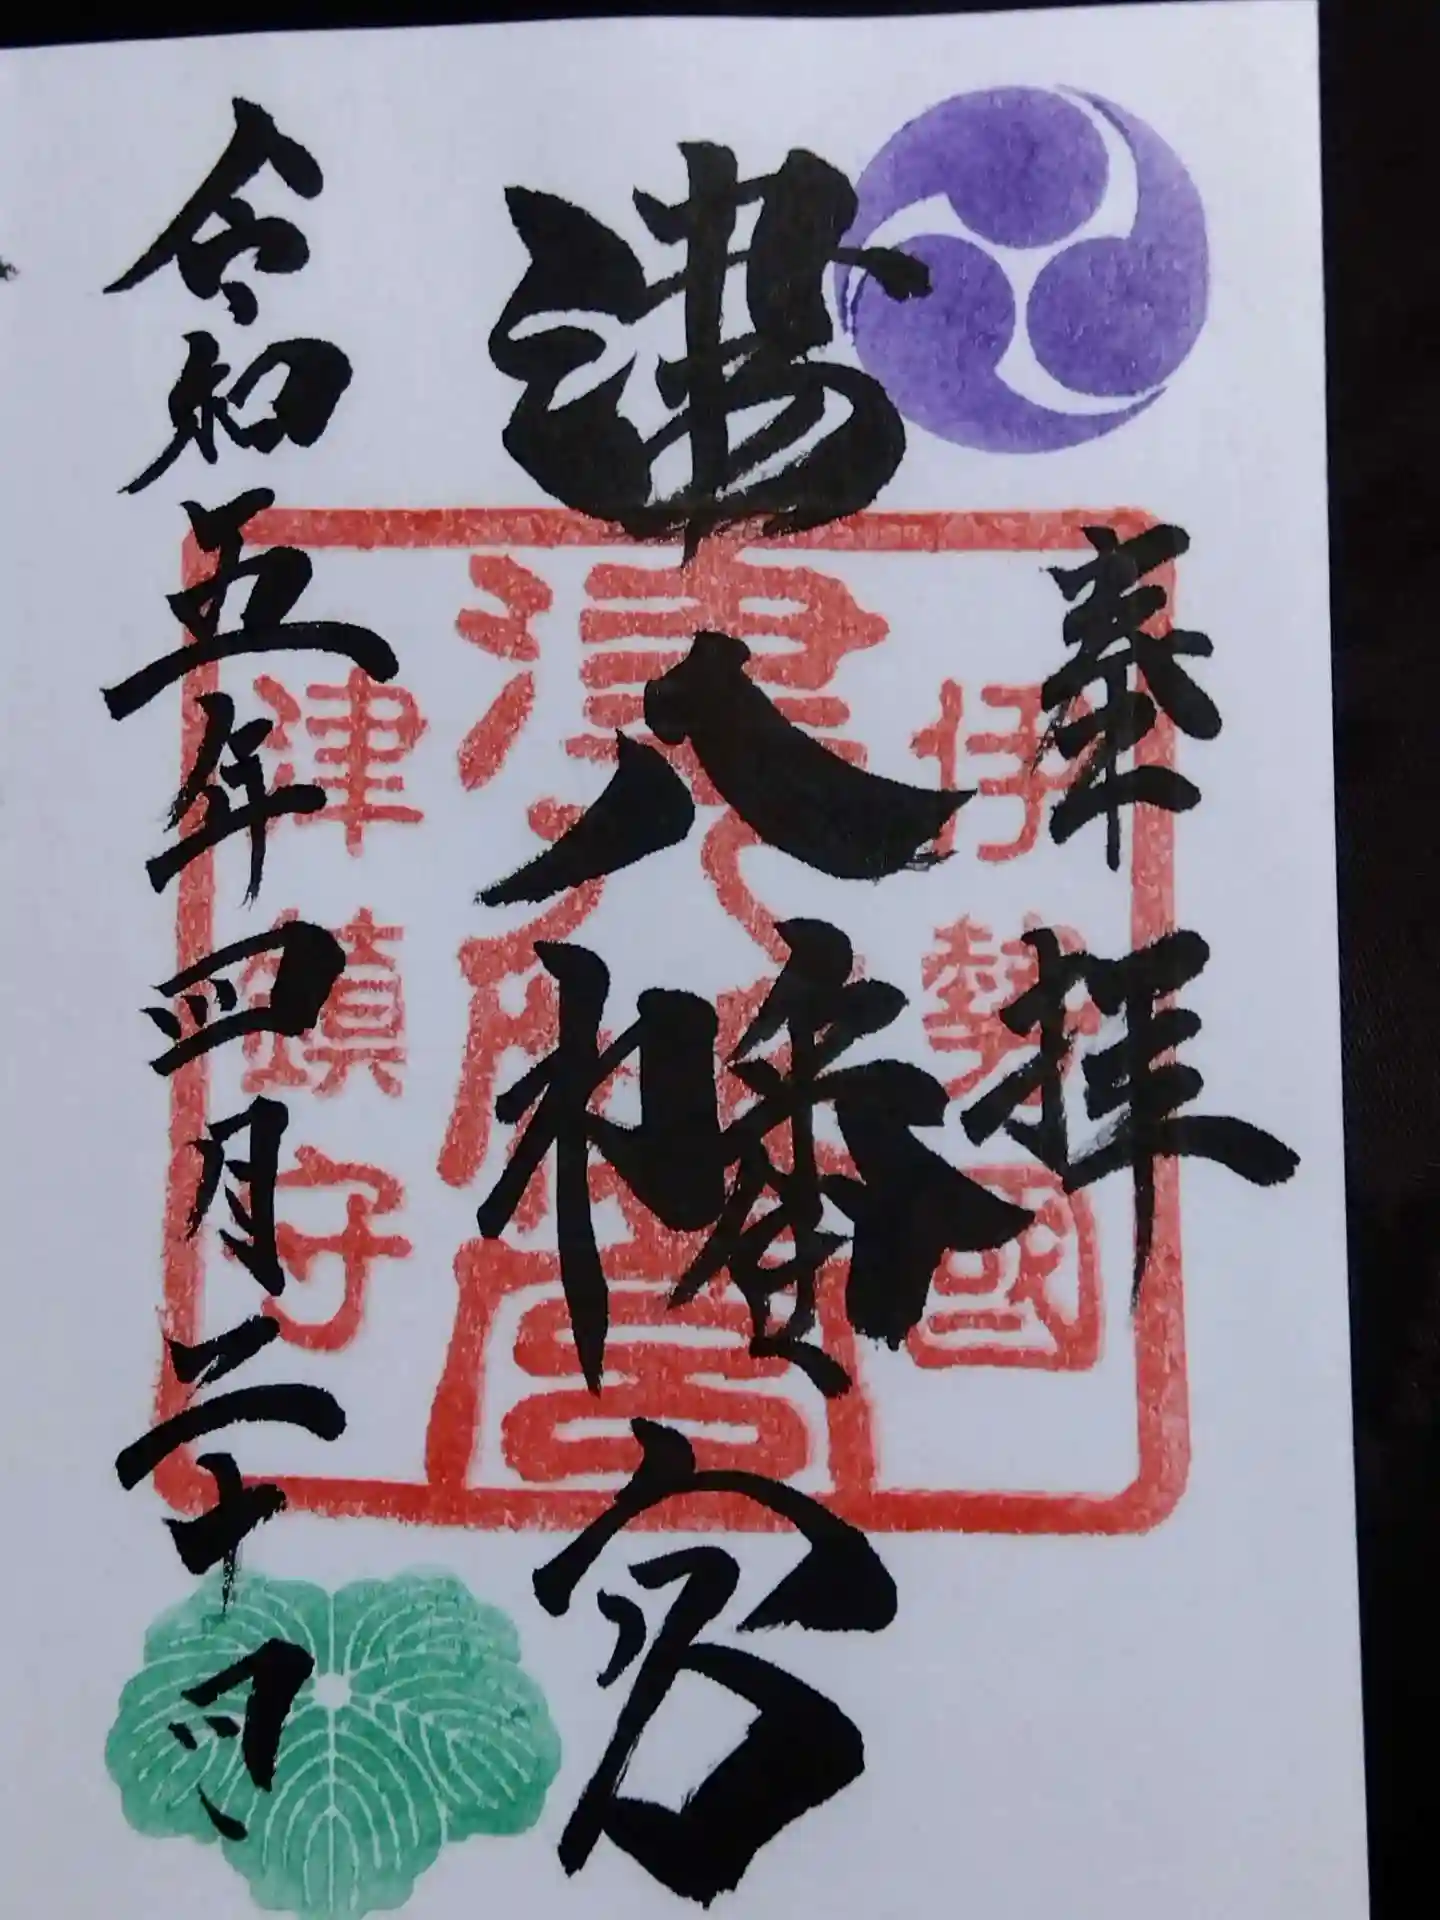 奉拝
津八幡宮
令和五年四月二十日
伊勢國
津八幡宮
津鎮守